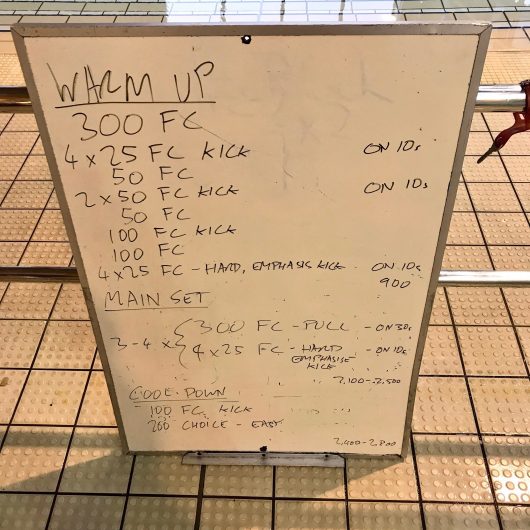 WARM UP
300 FC
4 x 25 FC KICK ON 10s
50 FC
2 x 50 FC KICK ON 10s
50 FC
100 FC KICK
100 FC
4 x 25 FC - HARD, EMPHASIS KICK ON 10s
900
MAIN SET
3-4 x { 300 FC - PULL - ON 30s
4 x 25 FC - HARD EMPHASISE KICK - ON 10s
2,100-2,500
COOL DOWN
100 FC KICK
200 CHOICE - EASY
2,400-2,800